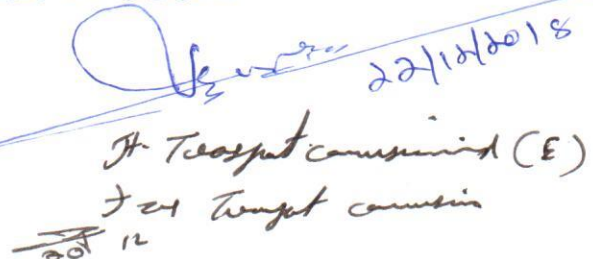 22/12/2018
Jt. Transport commissioner (E)
For Transport commissioner
20 12